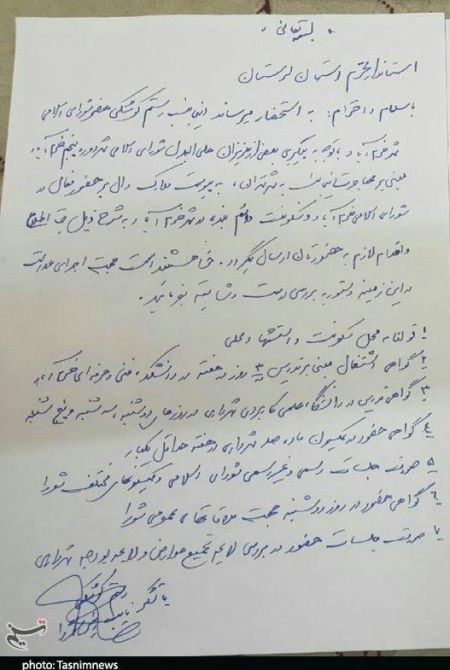 بسمه تعالی
استاندار محترم استان لرستان
با سلام و احترام: به استحضار میرساند اینجانب رستم کوشکی عضو شورای اسلامی
شهر خرم آباد با توجه به پیگیری بعضی از عزیزان علی البدل شورای اسلامی شهر دوره پنجم خرم آباد
مبنی بر مهاجرت اینجانب به تهران، به پیوست مدارک دال بر حضور فعال در
شورای اسلامی خرم آباد و سکونت دائم بنده در شهر خرم آباد به شرح ذیل جهت اطلاع
و اقدام لازم به حضورتان ارسال میگردد. خواهشمند است جهت اجرای عدالت
در این زمینه دستور به بررسی درست و شایسته بفرمائید.
۱ قولنامه محل سکونت و استشهاد محلی
۲ گواهی اشتغال مبنی بر تدریس ۳ روز در هفته در دانشکده فنی و حرفه ای خرم آباد
۳ گواهی تدریس در دانشگاه علمی کاربردی شهرداری در روزهای دوشنبه، سه شنبه و پنج شنبه
۴ گواهی حضور در کمیسیون ماده صد شهرداری در هفته حداقل یکبار
۵ صورت جلسات رسمی و غیر رسمی شورای اسلامی و کمیسیونهای مختلف شورا
۶ گواهی حضور در روز دوشنبه جهت ملاقاتهای عمومی شورا
۷ صورت جلسات حضور در بررسی لایحه تجمیع عوارض و لایحه بودجه شهرداری
با تشکر
رستم کوشکی
photo: Tasnimnews